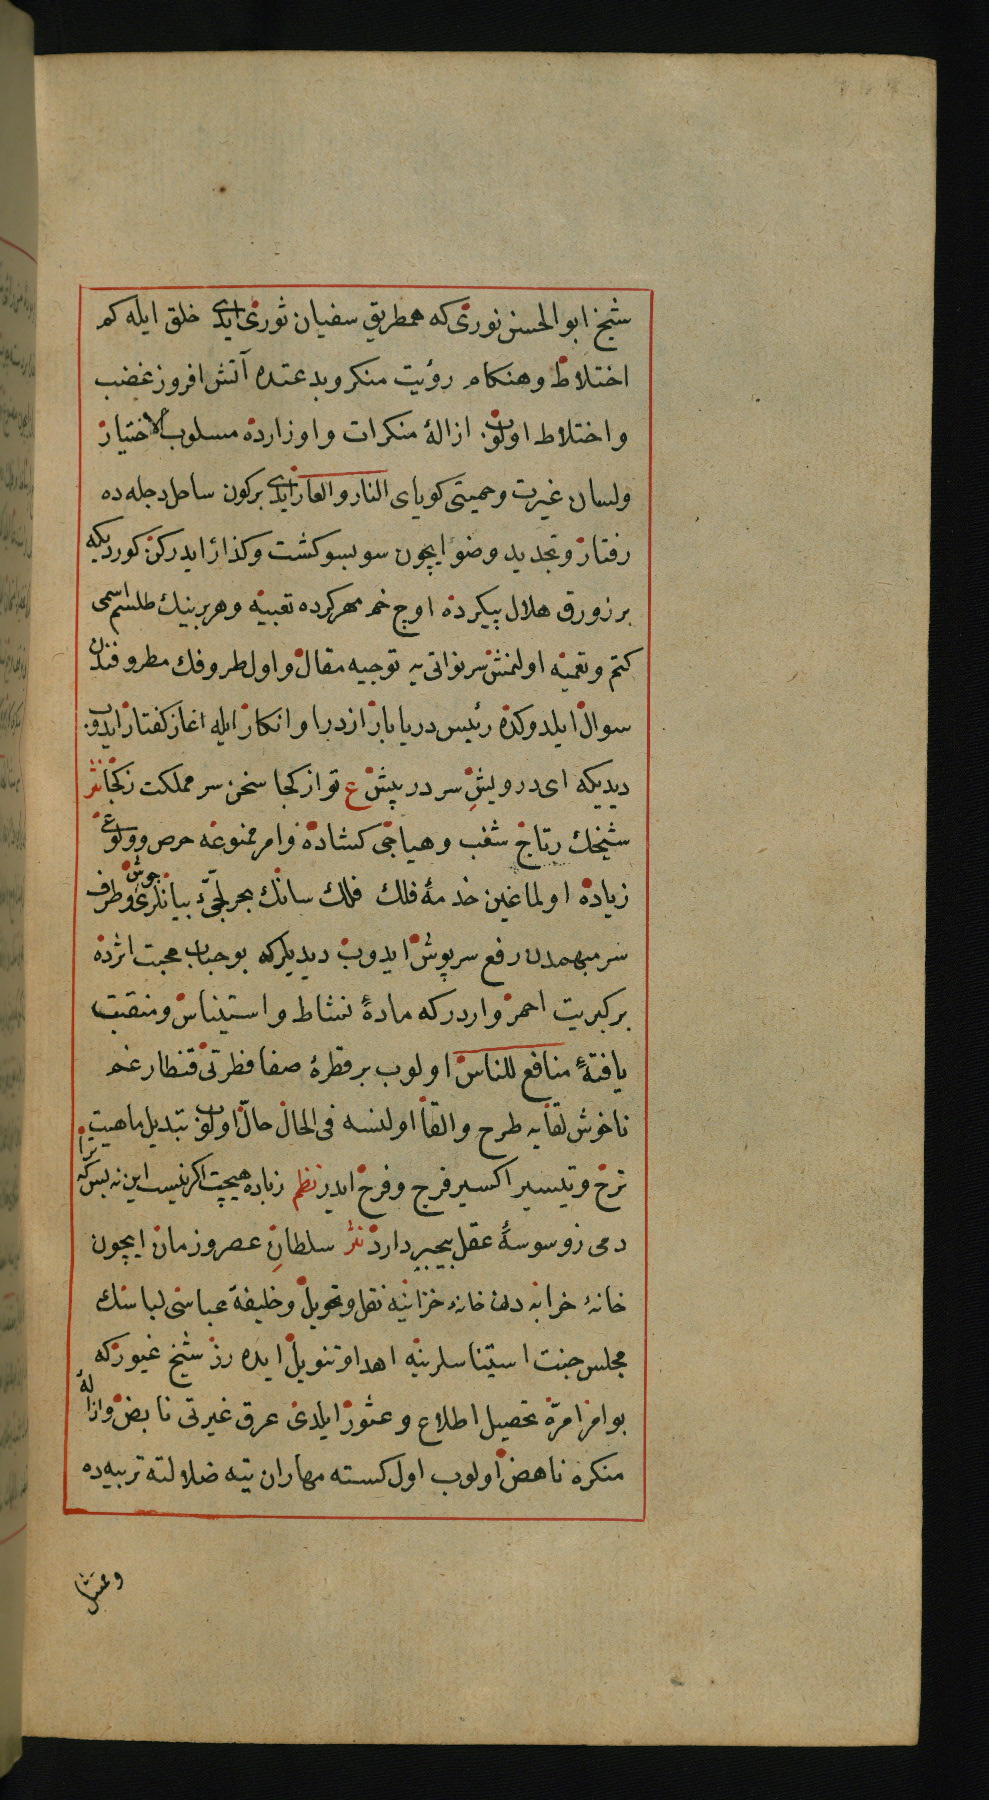 شیخ ابو الحسن نوری که همطریق سفیان ثوری ایدی خلق ایله کم
اختلاط و هنکام رؤیت منکر و بدعتده آتش افروز غضب
و اختلاط اولوب ازالۀ منکرات و اوزارده مسلوب الاختیار
ولسان غیرت و حمیتی کویای النار و العار ایدی برکون ساحل دجله ده
رفتار و تجدید وضو ایچون سو بسو کشت و کذار ایدرکن کوردیکه
بر زورق هلال پیکرده اوج خم مهر کرده تعبیه و هر برینك طلسم اسمی
کتم و تعمیه اولنمش سر نواتی یه توجیه مقال و اول ظروفك مظروفندن
سوال ایلدوکده رئیس دریا باز ازدرا و انکار ایله اغاز کفتار ایدوب
دیدیکه ای درویش سر در پیش ع تو از کجا سخن سر مملکت ز کجا نثر
شیخك رتاج شغب و هیاجی کشاده و امر ممنوعه حرص و ولوعی
زیاده اولماغین خدمۀ فلك فلك سانك بحر لجیء بیانلری جوش و ظرف
سر مبهمدن رفع سرپوش ایدوب دیدیلرکه بو حباب محبت اثرده
بر کبریت احمر واردر که مادۀ نشاط و استیناس و منقبت
یافتۀ منافع للناس اولوب بر قطرۀ صفا فطرتی قنطار غم
ناخوش لقایه طرح و القا اولنسه فی الحال حال اولوب تبدیل ماهیت
ترخ و تیسیر اکسیر فرج و فرح ایدر نظم ز باده هیچت اکر نیست این نه بس که ترا
دمی ز وسوسۀ عقل بیخبر دارد نثر سلطان عصر و زمان ایچون
خانۀ خرابه دن خانۀ خزاینه نقل و تحویل و خلیفۀ عباسی لباسنك
مجلس جنت استیناسلرینه اهدا و تنویل ایده رز شیخ غیور که
بو امر امره تحصیل اطلاع و عثور ایلدی عرق غیرتی نابض و ازالۀ
منکره ناهض اولوب اول کسسته مهاران تیه ضلالته تربیه ده